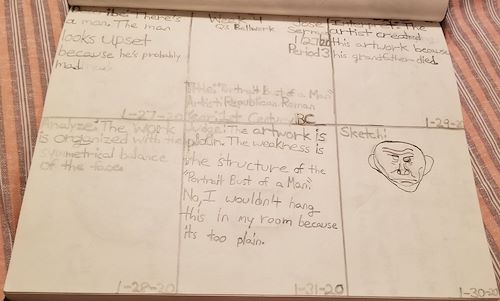 there's
a man. The man
looks upset
because he's probably
mad
1-27-20
Week 4
Q3 Bellwork
Jose
Period 3
Title: "Portrait Bust of a Man"
Artist: Republican Roman
Century BC
The
artist created
this artwork because
his grandfather died
1-29-
Analyze: The work
is organized with the
symmetrical balance
of the face
1-28-20
Judge: The artwork is
plain. The weakness is
the structure of the
"Portrait Bust of a Man."
No, I wouldn't hang
this in my room because
its too plain.
1-31-20
Sketch:
1-30-20